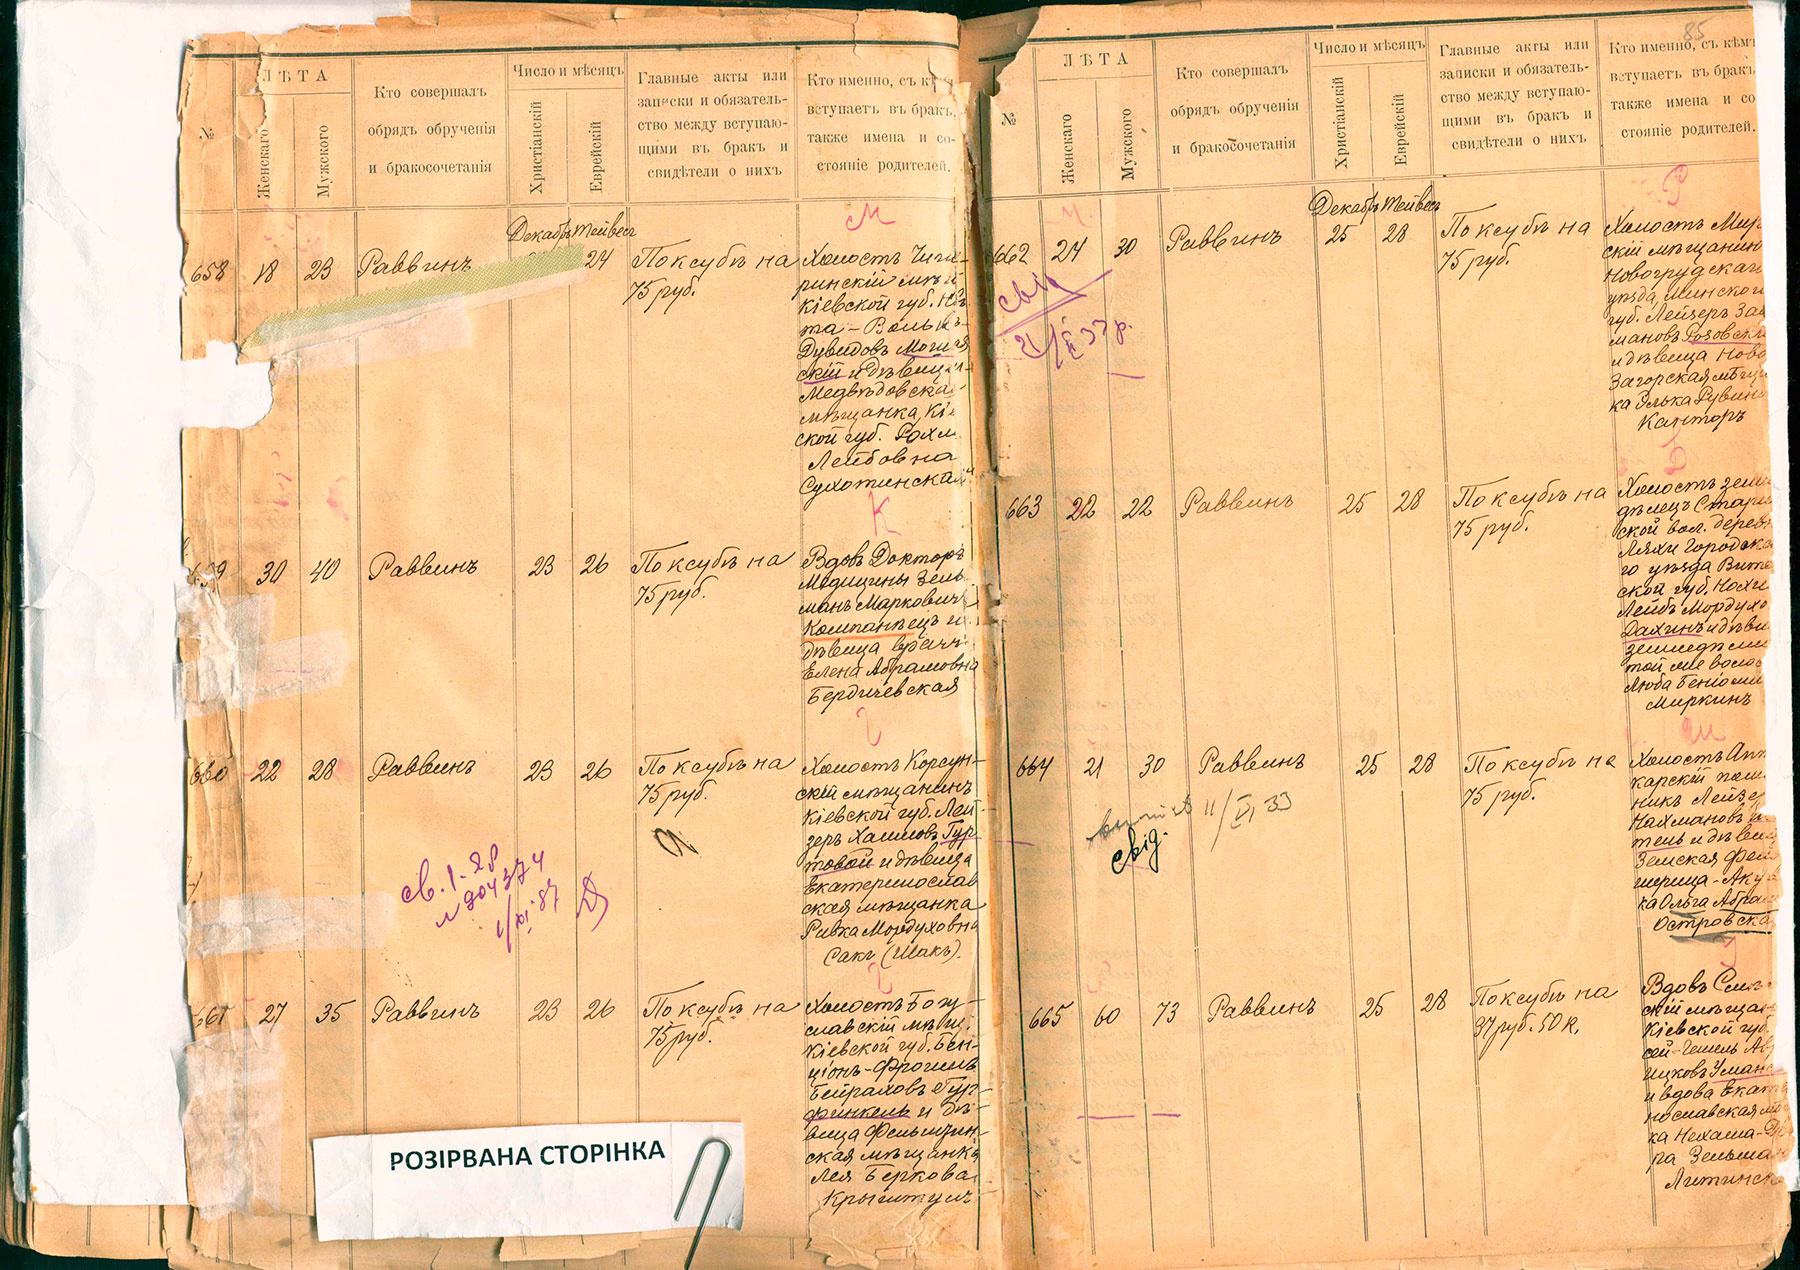 85
№
ЛѢТА
Женскаго
Мужского
Кто совершалъ
обрядъ обрученія
и бракосочетанія
Число и мѣсяцъ
Христіанскій
Еврейскій
Главные акты или
записки и обязатель-
ство между вступаю-
щими въ бракъ и
свидѣтели о нихъ
Кто именно, съ кѣмъ
вступаетъ въ бракъ,
также имена и со-
стояніе родителей.
М
Декабрь Тейвесъ
658 18 23 Раввинъ 24 По ксубѣ на
75 руб.
Холостъ Чиги-
ринскій мѣщ
Кіевской губ.
та-Вольк
Дувидовъ
скій и дѣвица
Медвѣдовская
мѣщанка
ской губ. Рохл
Лейбовна
Сухотинская
К
30 40 Раввинъ 23 26 По ксубѣ на
75 руб.
Вдовъ Докторъ
Медицины Зель-
манъ Марковичъ
Компанѣецъ и
дѣвица врачъ
Елена Абрамовна
Бердичевская
Г
660 22 28 Раввинъ 23 26 По ксубѣ на
75 руб.
Холостъ Корсун-
скій мѣщанинъ
Кіевской губ. Лей-
зеръ Хаимовъ Гур-
товой и дѣвица
Екатеринослав
ская мѣщанка
Ривка Мордуховна
Сакъ (Шакъ).
св. 1-28
№ 904374
1/XI 87
Г
661 27 35 Раввинъ 23 26 По ксубѣ на
75 руб.
Холостъ Богу-
славскій мѣщ.
Кіевской губ. Бен-
ціонъ-Фроимъ
Бейраховъ Гур-
финкель и дѣ-
вица Фельштин-
ская мѣщанка
Лея Беркова
Крыштулъ
РОЗІРВАНА СТОРІНКА
№
ЛѢТА
Женскаго
Мужского
Кто совершалъ
обрядъ обрученія
и бракосочетанія
Число и мѣсяцъ
Христіанскій
Еврейскій
Главные акты или
записки и обязатель-
ство между вступаю-
щими въ бракъ и
свидѣтели о нихъ
Кто именно, съ кѣмъ
вступаетъ въ бракъ
также имена и со
стояніе родителей.
Р
Декабрь Тейвесъ
662 24 30 Раввинъ 25 28 По ксубѣ на
75 руб.
Холостъ Мир
скій мѣщанин
Новогрудскаг
уѣзда Минско
губ. Лейзеръ Зал
мановъ Розовск
и дѣвица Ново
Загорская мѣщ
ка Элька Рувин
Канторъ
свід
21/II 37 р.
663 22 22 Раввинъ 25 28 По ксубѣ на
75 руб.
Холостъ земл
дѣлецъ Старо
ской вол. дерев
Ляхи Городск
го уѣзда Вите
ской губ. Нохи
Лейбъ Мордухо
Дахинъ и дѣви
земледѣл
той же волос
Люба Беніоми
Миркинъ
Ш
664 21 30 Раввинъ 25 28 По ксубѣ на
75 руб.
Холостъ Апт
карскій пом
никъ Лейзе
Нахмановъ
тель и дѣви
Земская фел
шерица-Аку
ка Ольга Абрам
Островска
11/VI 33
свід.
665 60 73 Раввинъ 25 28 По ксубѣ на
37 руб. 50 к.
Вдовъ Смѣ
скій мѣщан
Кіевской губ.
сей-Чемель Ав
ицковъ Уман
и вдова Екате
нославская м
ка Нехама-
ра Зельма
Литинск